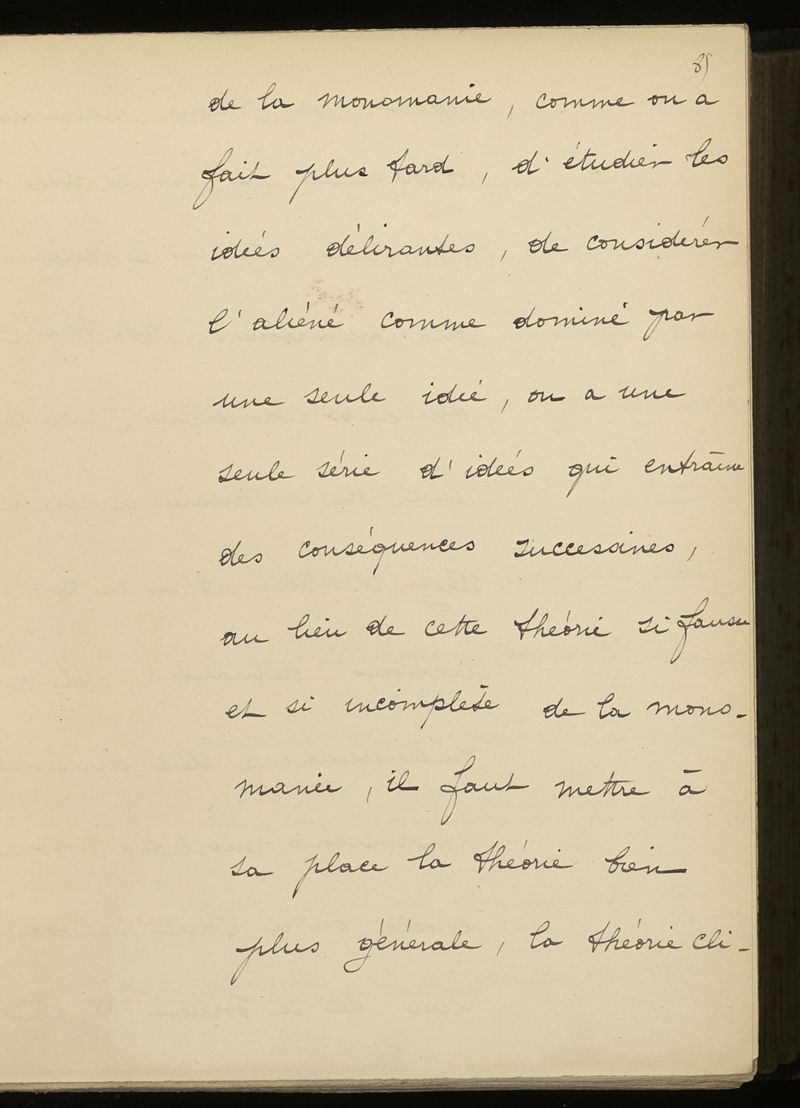 85
de la monomanie, comme on a
fait plus tard, d'étudier les
idées délirantes, de considérér
l'aliéné comme dominé par
une seule idée, ou a une
seule série d'idées qui entraîne
des conséquences succesaines,
au lieu de cette théorie si fausse
et si incomplète de la mono-
manie, il faut mettre à
sa place la théorie bien
plus générale, la théorie cli-